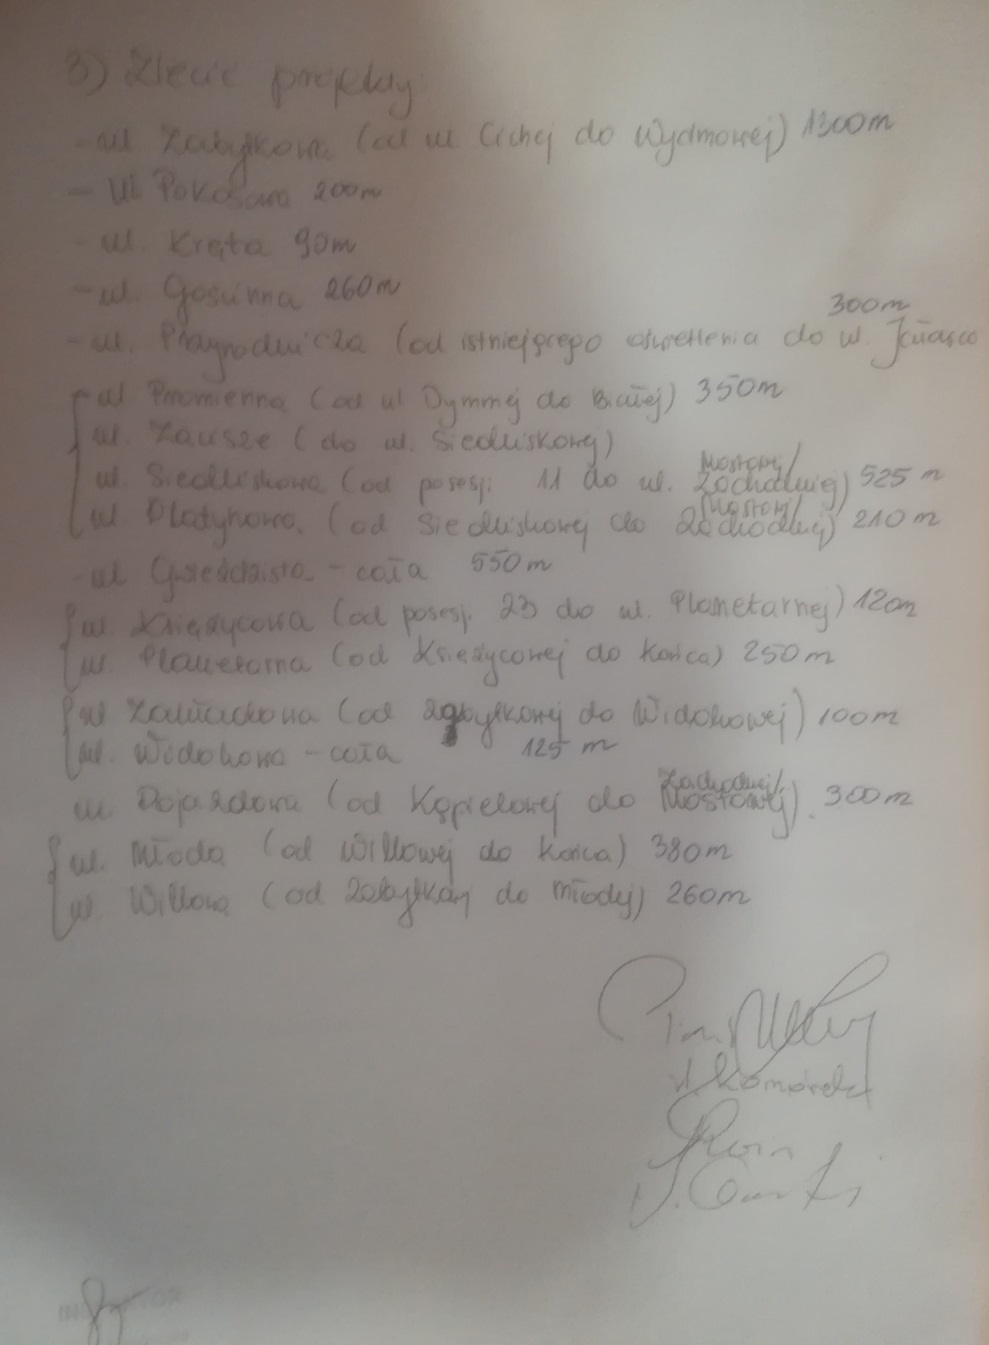 3) Zlecić projekty:
- ul. Zabytkowa (od ul. Cichej do Wydmowej) 1300m
- ul. Pokosowa 200m
- ul. Kręta 90m
- ul. Gościnna 260m
300m
- ul. Przyrodnicza (od istniejącego oświetlenia do ul.
ul. Promienna (od ul. Dymnej do Białej) 350m
ul. Zausze (do ul. Siedliskowej)
Mostowej/
ul. Siedliskowa (od posesji 11 do ul. Zachodniej) 525 m
Mostowej/
ul. Platynowa (od Siedliskowej do Zachodniej) 210 m
- ul. Gwieździsta - cała 550 m
ul. Księżycowa (od posesj. 23 do ul. Planetarnej) 120m
ul. Planetarna (od Księżycowej do końca) 250 m
ul. (od Zabytkowej do Widokowej) 100m
ul. Widokowa - cała 125 m
Zachodniej/
ul. Dojazdowa (od Kąpielowej do Mostowej) 300m
ul. Młoda (od Willowej do końca) 380m
ul. Willowa (od Zabytkowej do Młodej) 260m